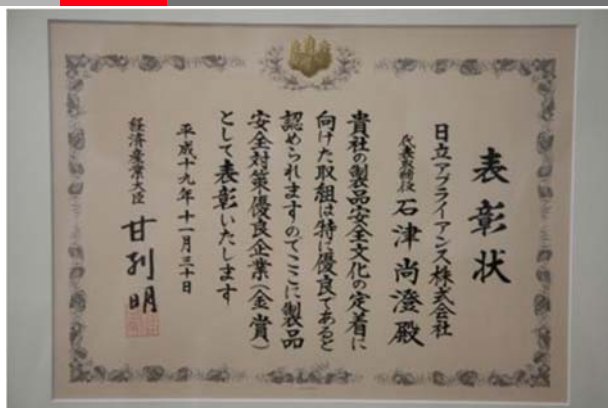 表彰状
日立アプライアンス株式会社
代表取締役 石津尚澄殿
貴社の製品安全文化の定着に
向けた取組は特に優良であると
認められますのでここに製品
安全対策優良企業(金賞)
として表彰いたします
平成十九年十一月三十日
経済産業大臣 甘利明